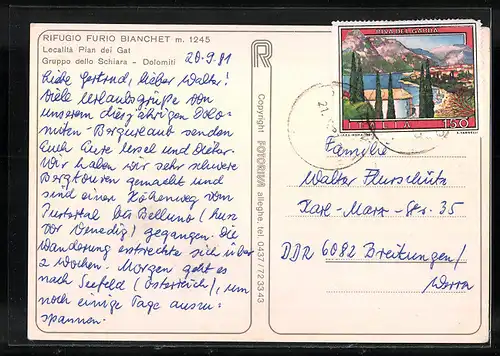 RIFUGIO FURIO BIANCHET m. 1245
Località Pian dei Gat
Gruppo dello Schiara - Dolomiti
20.9.81
Liebe Gertrud, lieber Walter!
Viele Urlaubsgrüße von
unserem diesjährigen Dolo-
miten-Bergurlaub senden
Euch Eure Ursel und Dieter.
Wir haben wir sehr schwere
Bergtouren gemacht und
sind einen Höhenweg vom
Pustertal bis Belluno (kurz
vor Venedig) gegangen. Die
Wanderung erstreckte sich über
2 Wochen. Morgen geht es
nach Seefeld (Österreich), um
noch einige Tage auszu-
spannen.
R
Copyright FOTORIVA alleghe, tel. 0437/72 33 43
RIVA DEL GARDA
ITALIA 150
Familie
Walter Flurschütz
Karl-Marx-Str. 35
DDR 6082 Breitungen/
Werra